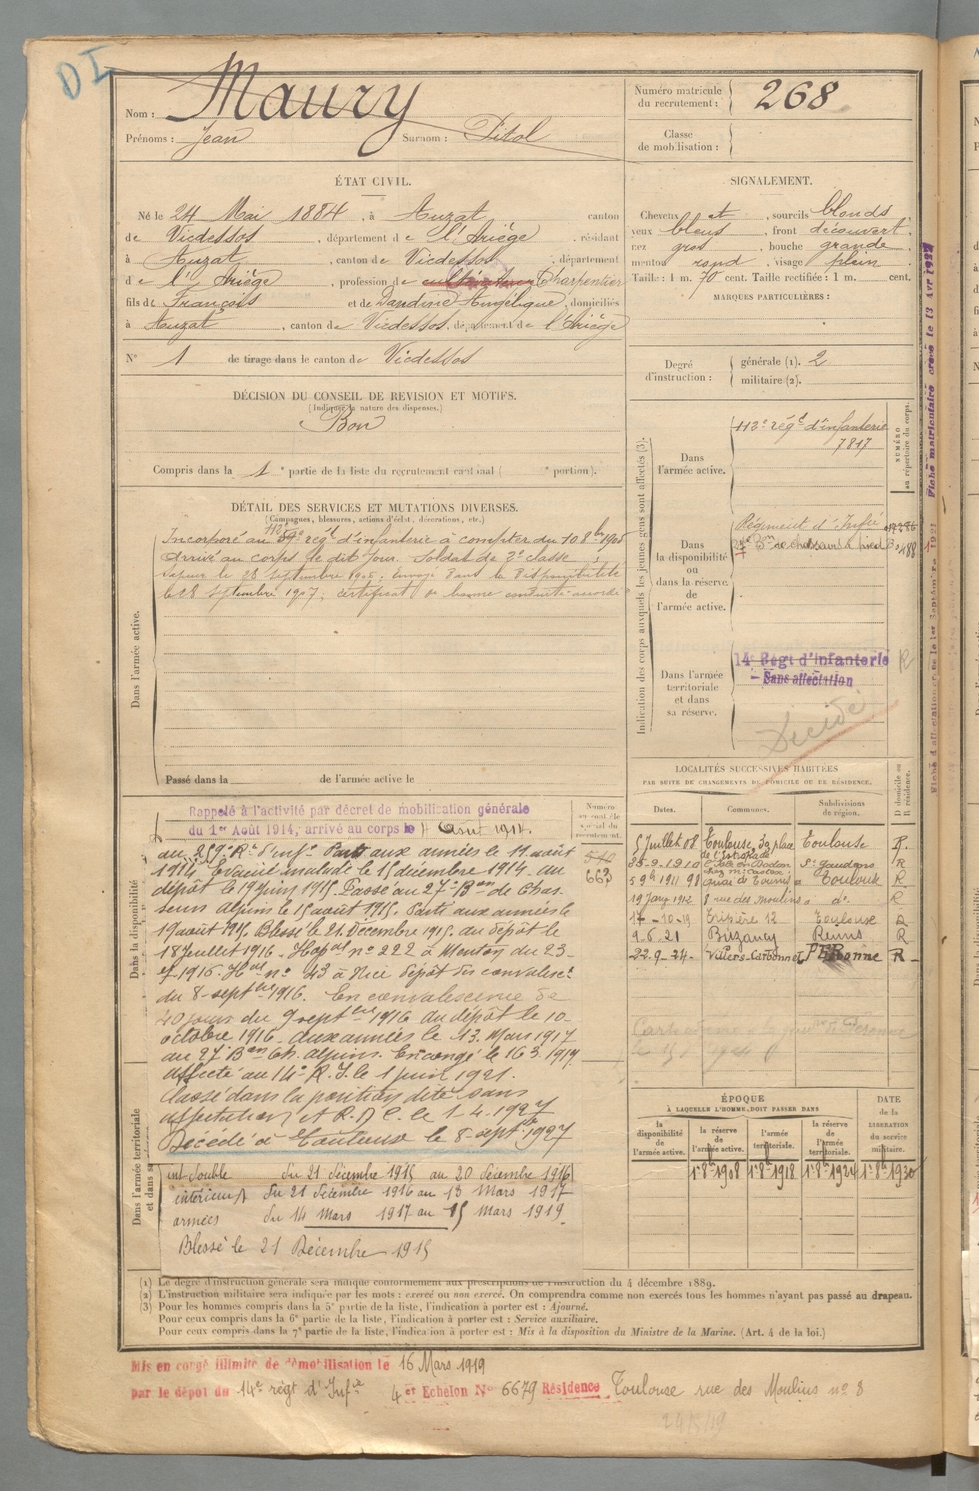 DI
Nom : Maury
Prénoms : Jean Surnom : Pitol
Numéro matricule du recrutement : 268
Classe de mobilisation :
ÉTAT CIVIL.
Né le 24 Mai 1884, à Auzat canton
de Vicdessos, département de l'Ariège, résidant
à Auzat, canton de Vicdessos, département
de l'Ariège, profession de Charpentier
fils de François et de Dandine Angélique, domiciliés
à Auzat, canton de Vicdessos, département de l'Ariège
N° 1 de tirage dans le canton de Vicdessos
SIGNALEMENT.
Cheveux et, sourcils blonds
yeux bleus, front découvert
nez gros, bouche grande
menton rond, visage plein
Taille : 1 m. 70 cent. Taille rectifiée : 1 m. cent.
MARQUES PARTICULIÈRES :
Degré d'instruction : générale (1). 2
militaire (2).
DÉCISION DU CONSEIL DE REVISION ET MOTIFS.
(Indiquer la nature des dispenses.)
Bon
Compris dans la 1e partie de la liste du recrutement cantonal ( e portion).
DÉTAIL DES SERVICES ET MUTATIONS DIVERSES.
(Campagnes, blessures, actions d'éclat, décorations, etc.)
Dans l'armée active.
Incorporé au 112e régt d'infanterie à compter du 10 8bre 1905
Arrivé au corps le dit jour. Soldat de 2e classe
Sapeur le 28 septembre 1906; envoyé dans la disponibilité
le 28 septembre 1907; certificat de bonne conduite accordé
Passé dans la de l'armée active le
Indication des corps auxquels les jeunes gens sont affectés (3).
NUMÉRO au répertoire du corps.
Dans l'armée active.
112e régt d'infanterie
7817
Dans la disponibilité ou dans la réserve de l'armée active.
Régiment d'Infie
Bon de chasseurs à pied
Dans l'armée territoriale et dans sa réserve.
14e Régt d'Infanterie
- Sans affectation
Décédé
Fiche matriculaire créée le 13 Avr 1922
LOCALITÉS SUCCESSIVES HABITÉES
PAR SUITE DE CHANGEMENTS DE DOMICILE OU DE RÉSIDENCE.
Dates. Communes. Subdivisions de région. D domicile ou R résidence.
5 Juillet 08 Toulouse, 39 place de l'Estrapade Toulouse R.
25-9-1910 St Gaudens R
5 9bre 1911 98 quai de Tounis Toulouse R
19 Janv 1912 8 rue des Moulins do R
17-10-19 Tripière 12 Toulouse R
9-6-21 Buzancy Reims R
22-9-24- Villers-Carbonnel PERonne R -
Rappelé à l'activité par décret de mobilisation générale
du 1er Août 1914, arrivé au corps le 4 Août 1914.
Numéro au contrôle spécial du recrutement.
663
Dans la disponibilité
au 259e R. d'infie Parti aux armées le 11 août
1914 Evacué malade le 15 décembre 1914. au
dépôt le 19 juin 1915. Passé au 27e Bon de Chas
seurs alpins le 15 août 1915. Parti aux armées le
19 août 1915 Blessé le 21 Décembre 1915. au dépôt le
18 juillet 1916. Hopal no 222 à Menton du 23
-7-1916. Hal no 43 à Nice dépôt des convalesc.
du 8 septbre 1916. En convalescence de
40 jours du 9 septbre 1916 au dépôt le 10
octobre 1916. aux armées le 13 Mars 1917
au 27 Bon Ch. alpins. En congé le 16 3 1919
affecté au 14e R. I. le 1 juin 1921.
Classé dans la position dite sans
affectation le 1-4-1927
Décédé à Toulouse le 8-septbre 1927
Dans l'armée territoriale et dans sa
int double du 21 décembre 1915 au 20 décembre 1916
intérieur du 21 décembre 1916 au 13 Mars 1917
armées du 14 mars 1917 au 15 mars 1919
Blessé le 21 Décembre 1915
ÉPOQUE À LAQUELLE L'HOMME DOIT PASSER DANS
la disponibilité de l'armée active. la réserve de l'armée active. l'armée territoriale. la réserve de l'armée territoriale.
DATE de la LIBÉRATION du service militaire.
1er 8bre 1908 1er 8bre 1918 1er 8bre 1924 1er 8bre 1930
(1) Le degré d'instruction générale sera indiqué conformément aux prescriptions de l'instruction du 4 décembre 1889.
(2) L'instruction militaire sera indiquée par les mots : exercé ou non exercé. On comprendra comme non exercés tous les hommes n'ayant pas passé au drapeau.
(3) Pour les hommes compris dans la 5e partie de la liste, l'indication à porter est : Ajourné.
Pour ceux compris dans la 6e partie de la liste, l'indication à porter est : Service auxiliaire.
Pour ceux compris dans la 7e partie de la liste, l'indication à porter est : Mis à la disposition du Ministre de la Marine. (Art. 4 de la loi.)
Mis en congé illimité de démobilisation le 16 Mars 1919
par le dépôt du 14e régt d'Infie 4er Echelon N° 6679 Résidence Toulouse rue des Moulins no 8